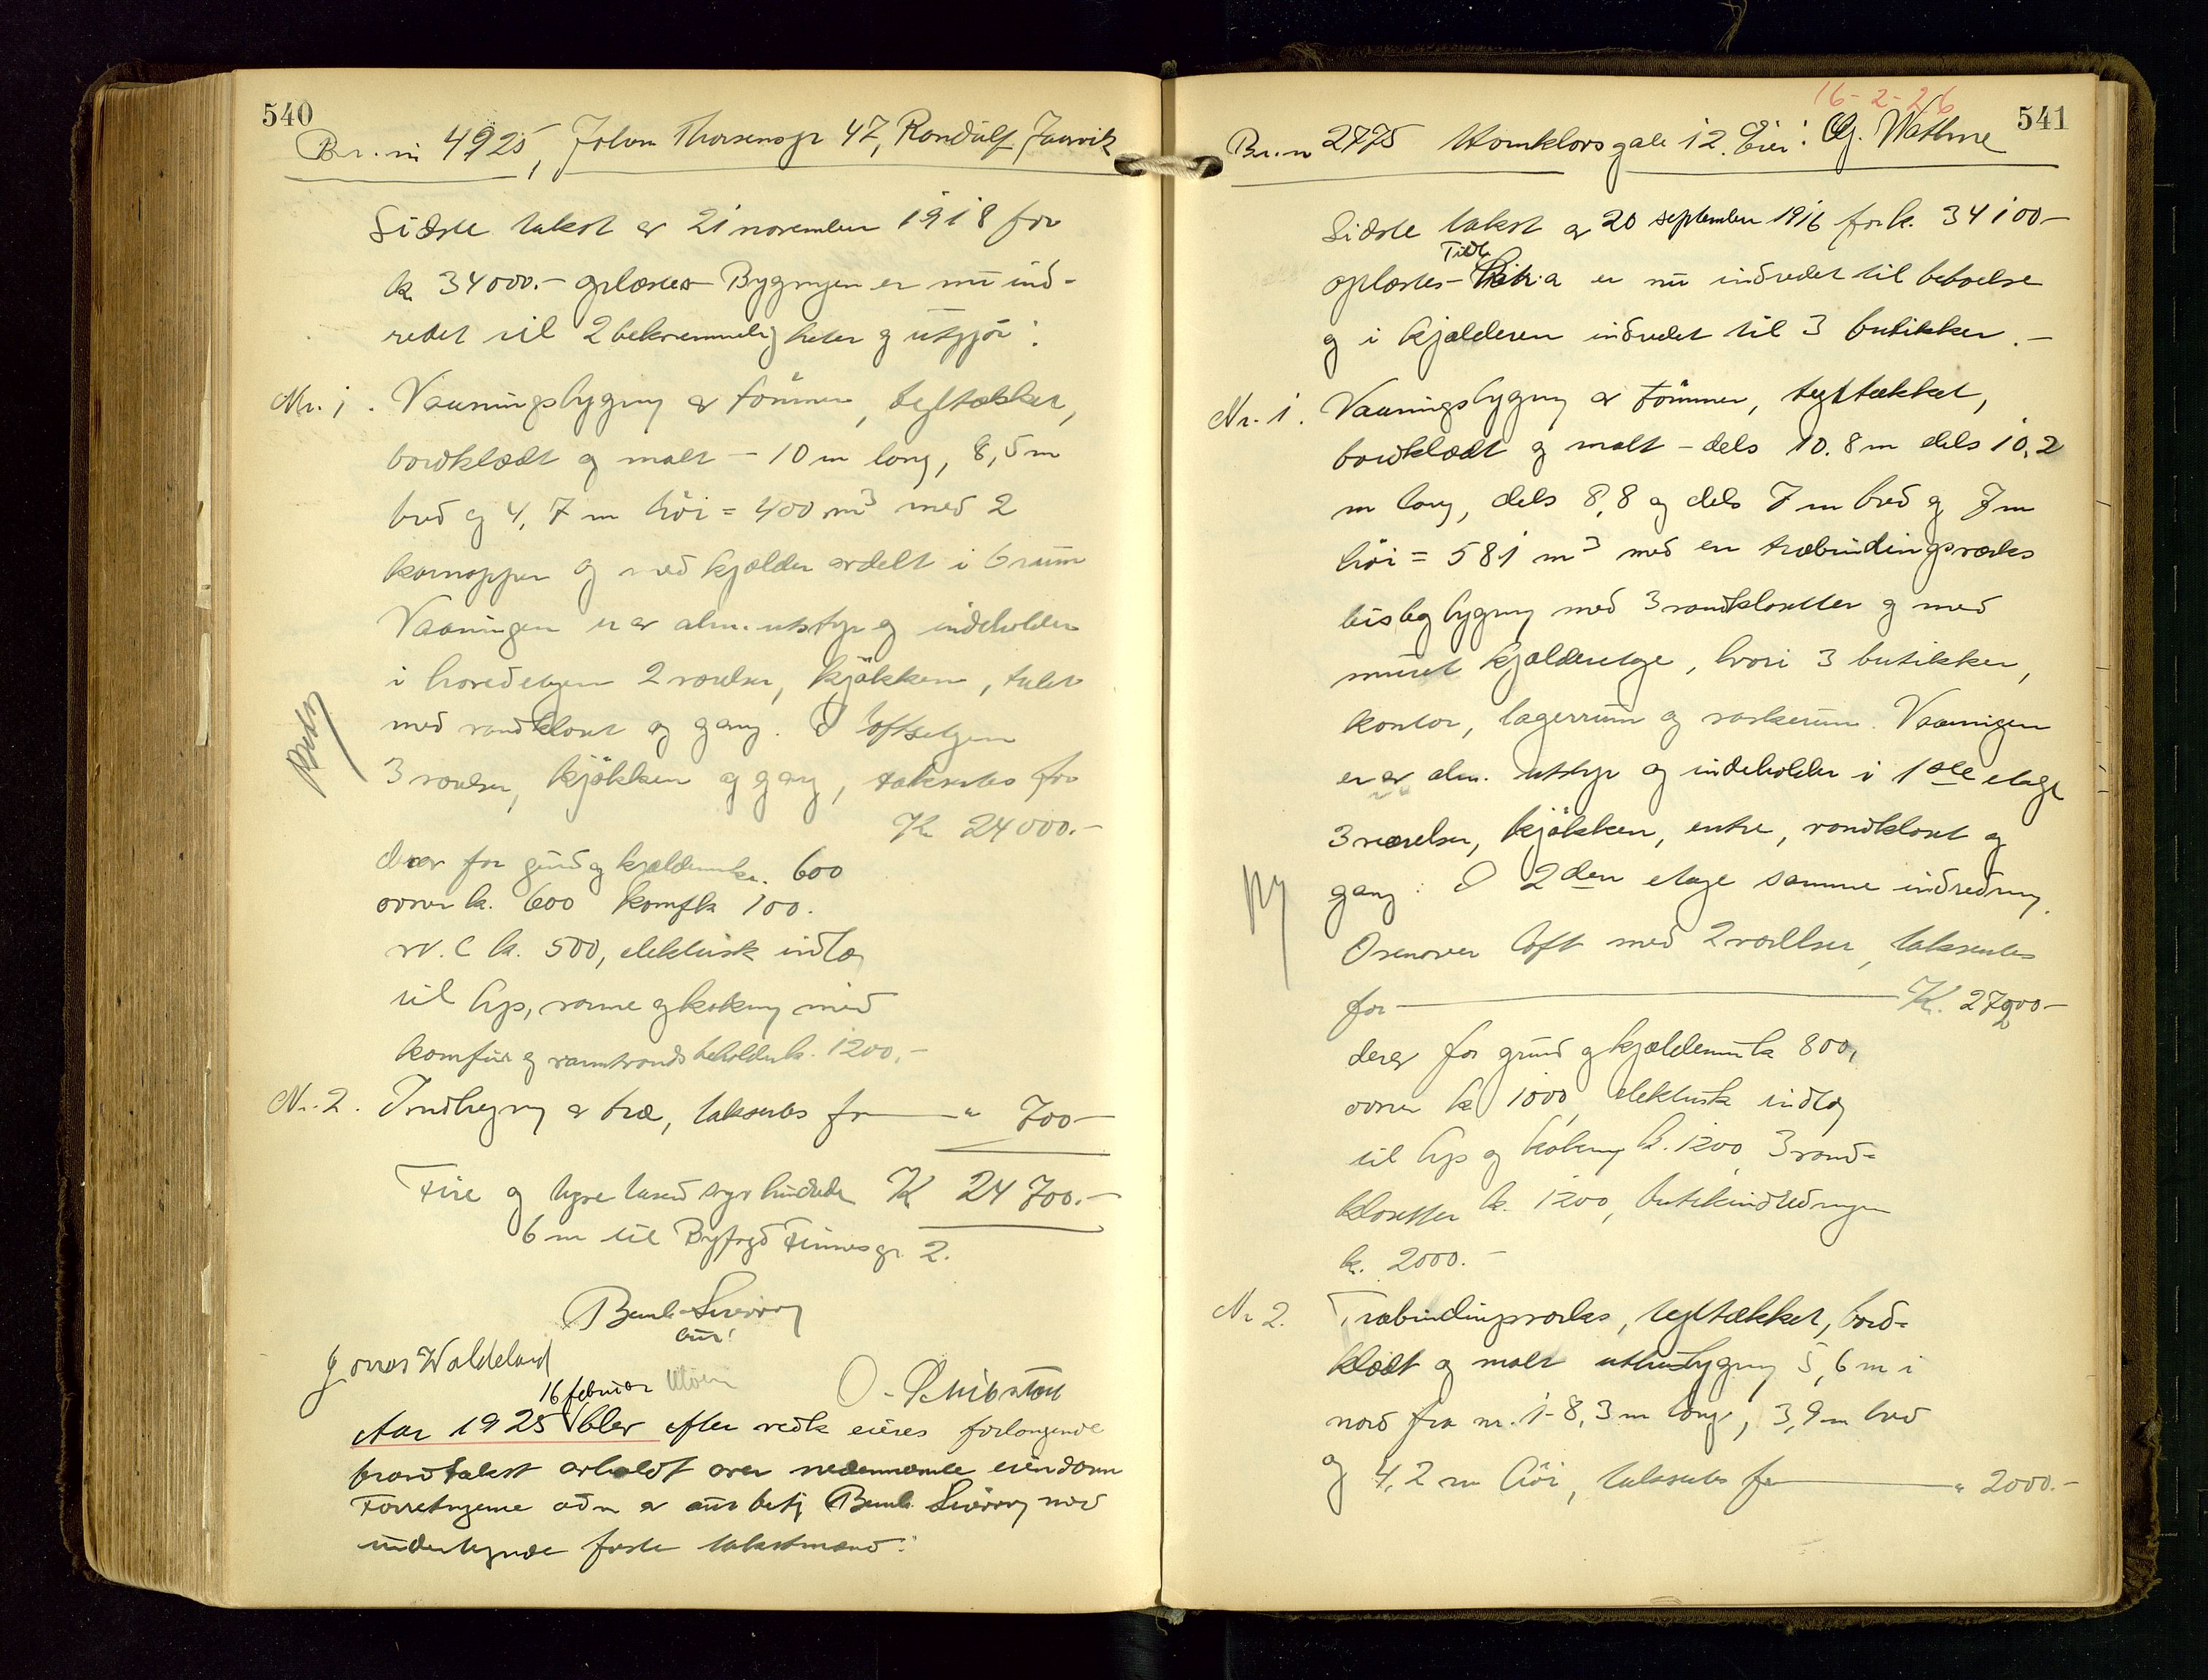 540
Br. nr 4925, Johan Thorsensgr 47, Randulf Jaarvik
Sidste takst av 21 november 1918 for
kr. 34000.- opløstes Bygningen er nu ind-
redet til 2 bekvemmeligheter og utgjör:
Nr. 1. Vaaningsbygning av tömmer, tegltækket,
bordklædt og malt - 10 m lang, 8,5 m
bred og 4,7 m höi = 400 m³ med 2
karnapper og med kjælder avdelt i 6 rum
Vaaningen er av alm. utstyr og indeholder
i hovedetagen 2 værelser, kjökken, toilet
med vandkloset og gang. I loftsetagen
3 værelser, kjökken og gang, taksertes for
Kr 24000.-
derav for grund og kjældermur kr. 600
ovner kr. 600 komf kr 100.
W.C kr. 500, elektrisk indlæg
til lys, varme og kokning med
komfur og varmtvandsbeholder kr. 1200.-
Nr. 2. Indhegning av træ, taksertes for " 700-
Fire og tyve tusend syv hundrede Kr 24700.-
6 m til Byfogd Finnesgr. 2.
Bernh Sverdrup
aut!
Jonas Waldeland
O. Schibstad
16 februar
Aar 1925 blev efter vedk eieres forlangende
brandtakst avholdt over nedennævnte eiendom
Forretningerne adm av aut betj Bernh. Sverdrup med
undertegnede faste takstmænd:
16-2-26
541
Br. nr 2775 Kornklovsgate 12. Eier: Og. Wathne
Sidste takst av 20 september 1916 for kr. 34100-
Tidl.
opløstes- er nu indredet til beboelse
og i kjælderen indredet til 3 butikker.-
Nr. 1. Vaaningsbygning av tömmer, tegltækket,
bordklædt og malt - dels 10.8 m dels 10,2
m lang, dels 8,8 og dels 7 m bred og 7 m
höi = 581 m³ med en træbindingsverks
bislagbygning med 3 vandklosetter og med
muret kjælderetage, hvori 3 butikker,
kontor, lagerrum og vaskerum. Vaaningen
er av alm. utstyr og indeholder i 1ste etage
3 værelser, kjökken, entre, vandkloset og
gang. I 2den etage samme indredning.
Ovenover loft med 2 værelser, taksertes
for Kr. 27900-
derav for grund og kjældermur kr 800,
ovner kr 1000, elektrisk indlæg
til lys og kokning kr. 1200, 3 vand-
klosetter kr. 1200, butikindredningen
kr. 2000.-
Nr 2. Træbindingsverks, tegltækket, bord-
klædt og malt uthusbygning 5,6 m i
nord fra nr. 1- 8,3 m lang, 3,9 m bred
og 4,2 m höi, taksertes for " 2000.-